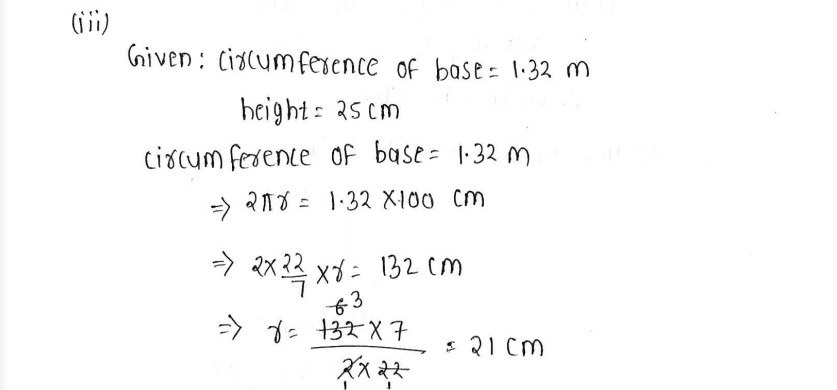 (iii)
Given: Circumference of base = 1.32 m
height = 25 cm
circumference of base = 1.32 m
⇒ 2πr = 1.32 × 100 cm
⇒ 2 × 22/7 × r = 132 cm
6 3
⇒ r = 132 × 7 / 2 × 22 = 21 cm
1 1